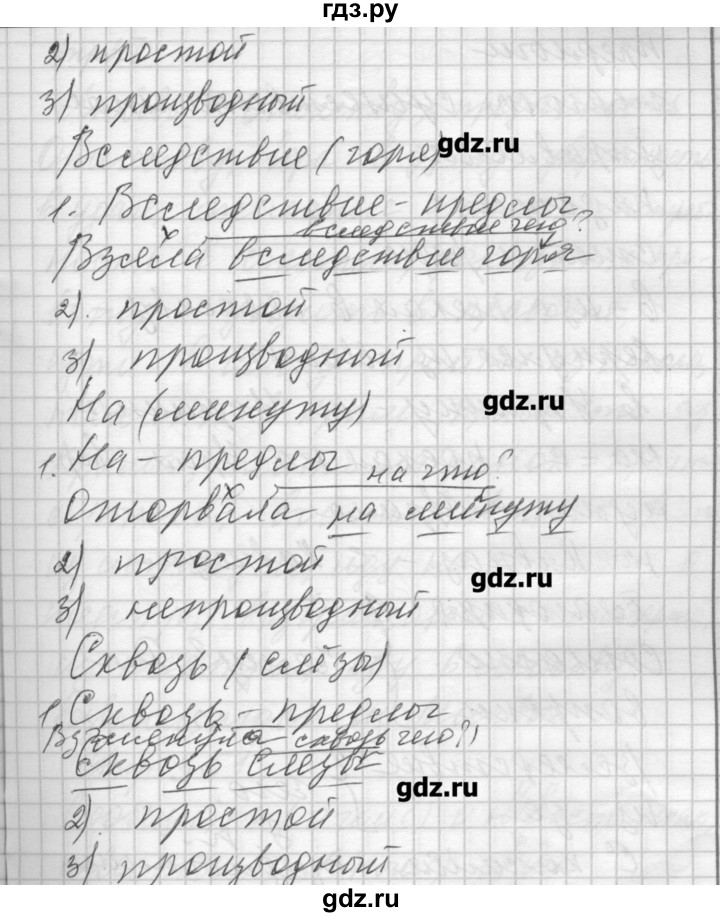 гдз.ру
2) простой
3) производный
Вследствие (горя) gdz.ru
1. Вследствие - предлог
вследствие чего?
Взяла вследствие горя
2). простой
3) производный
На (минуту) gdz.ru
1. На - предлог на что?
Оторвала на минуту
2) простой gdz.ru
3) непроизводный
Сквозь (слёзы)
1. Сквозь - предлог
сквозь чего?)
сквозь слезы
gdz.ru
2). простой
3) производный
gdz.ru